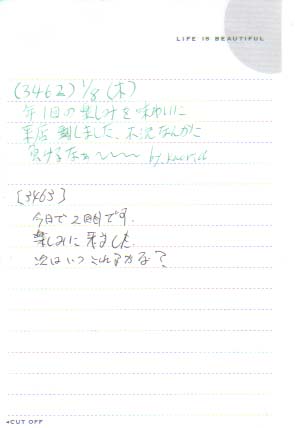 LIFE IS BEAUTIFUL
(3462) 1/8 (木)
年1回の楽しみを味わいに
来店 致しました、不況なんかに
負けるなぁ〜〜〜 by
[3463]
今日で2回目です。
楽しみに来ました。
次はいつこれるかな?
◂CUT OFF